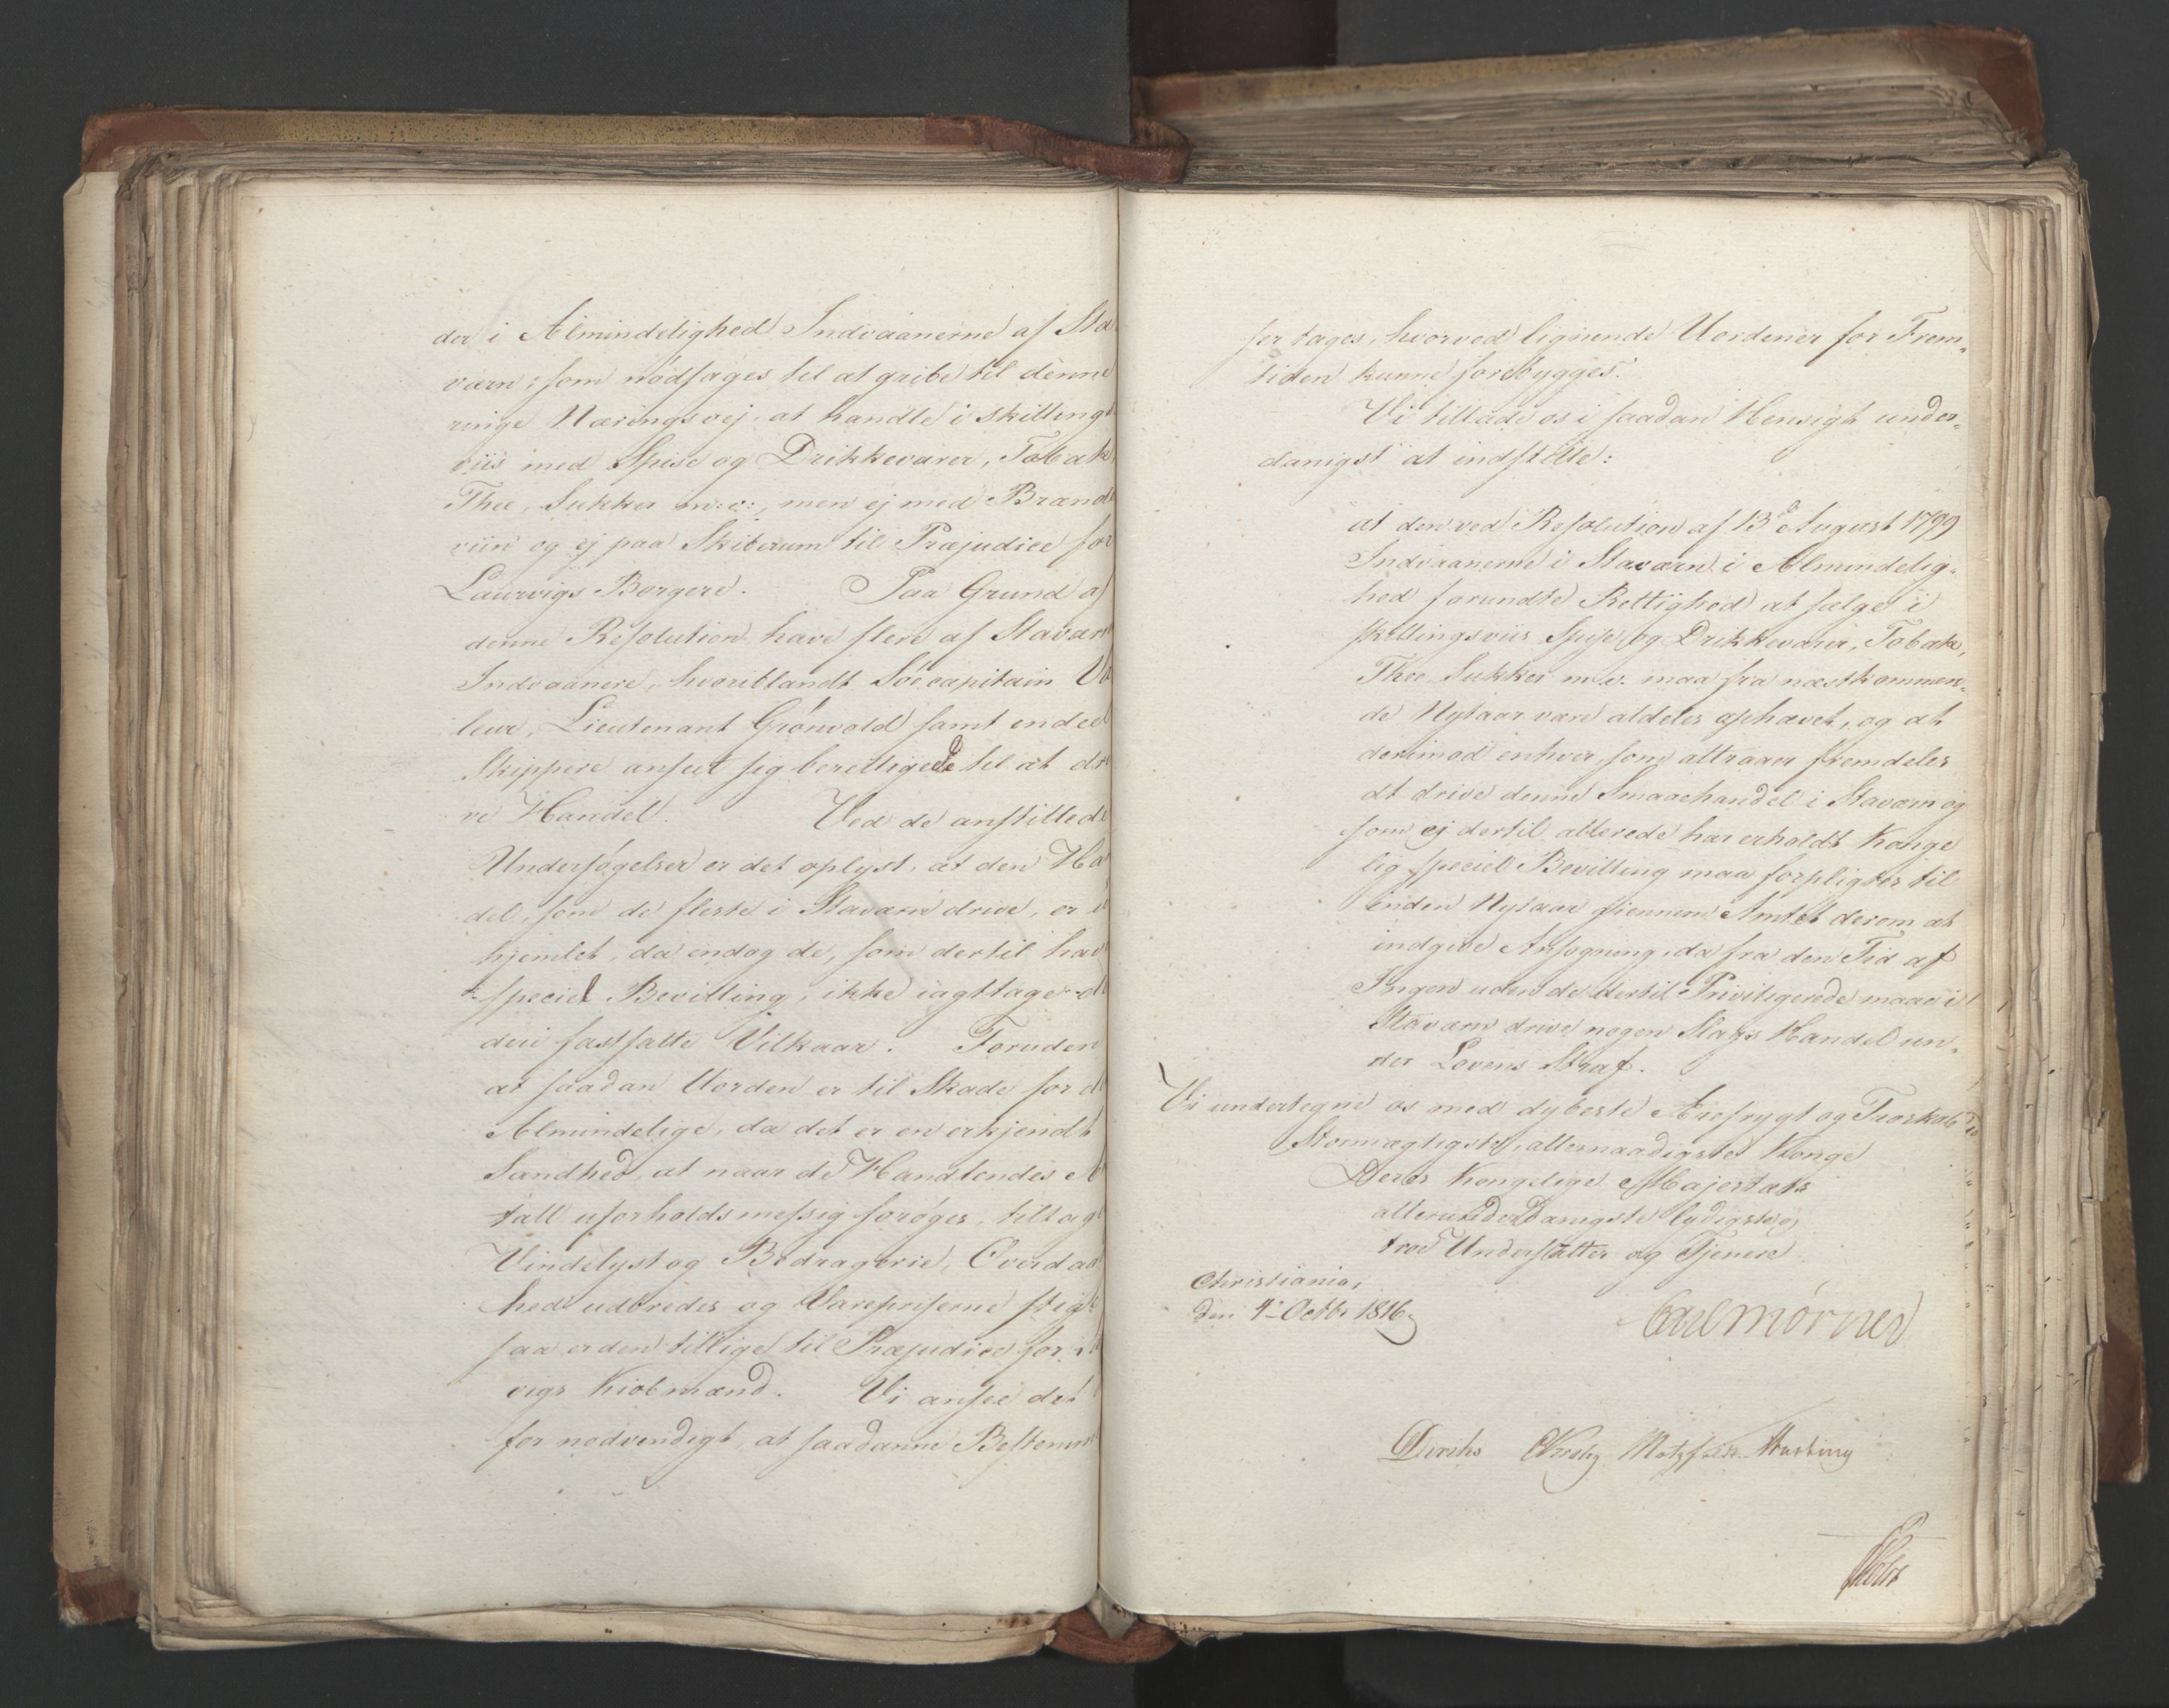 der i Almindelighed Indvaanerne af Sta
værn, som nødsages til at gribe til denne
ringe Næringsvej at handle i skillings
viis med Spise og Drikkevarer, Tobak
Thee, Sukker m: v:, men ej med Brænde
viin og ej paa Skiberum til Præjudice for
Laurvigs Borgere. Paa Grund af
denne Resolution have flere af Staværns
Indvaanere, hvoriblandt Søecapitain Va
leur, Lieutenant Grønvold samt endeel
Skippere anseet sig berettigede til at dri
ve Handel. Ved de anstillede
Undersøgelser er det oplyst, at den Ha
del, som de fleste i Staværn drive, er u
hjemlet, da endog de, som dertil have
speciel Bevilling, ikke iagttage de
deri fastsatte Vilkaar. Foruden
at saadan Uorden er til Skade for det
Almindelige, da det er en erkjendt
Sandhed, at naar de Handlendes A
tall uforholdsmessig forøges, tiltage
Vindelyst og Bedragerie, Overdaa
hed udbredes og Varepriserne stige
saa er den tillige til Præjudice for
vigs Kiøbmænd. Vi ansee det
for nødvendigt, at saadanne Bestemm
ser tages, hvorved lignende Uordener for Frem-
tiden kunne forebygges.
Vi tillade os i saadan Hensigt under-
danigst at indstille:
at den ved Resolution af 13de August 1799
Indvaanerne i Staværn i Almindelig-
hed forundte Rettighed at sælge i
skillingsviis Spise og Drikkevarer, Tobak,
Thee, Sukker m. v. maa fra næstkommen-
de Nytaar være aldeles ophævet, og at
derimod enhver, som attraaer fremdeles
at drive denne Smaaehandel i Staværn og
som ej dertil allerede har erholdt Konge
lig speciel Bevilling maa forpligtes til
inden Nytaar giennem Amtet derom at
indgive Ansøgning, da fra den Tid af
Ingen uden de dertil Priviligerede maae i
Staværn drive nogen Slags Handel un-
der Lovens Straf.
Vi undertegne os med dybeste Ærefrygt og Troskab
Stormægtigste, allernaadigste Konge
Deres Kongelige Majestæts
allerunderdanigste lydigste og
troe Undersatter og Tjenere
Christiania,
den 4de Octbr 1816
Carl Mörner
Diriks Krebs Motzfeldt Hartvig